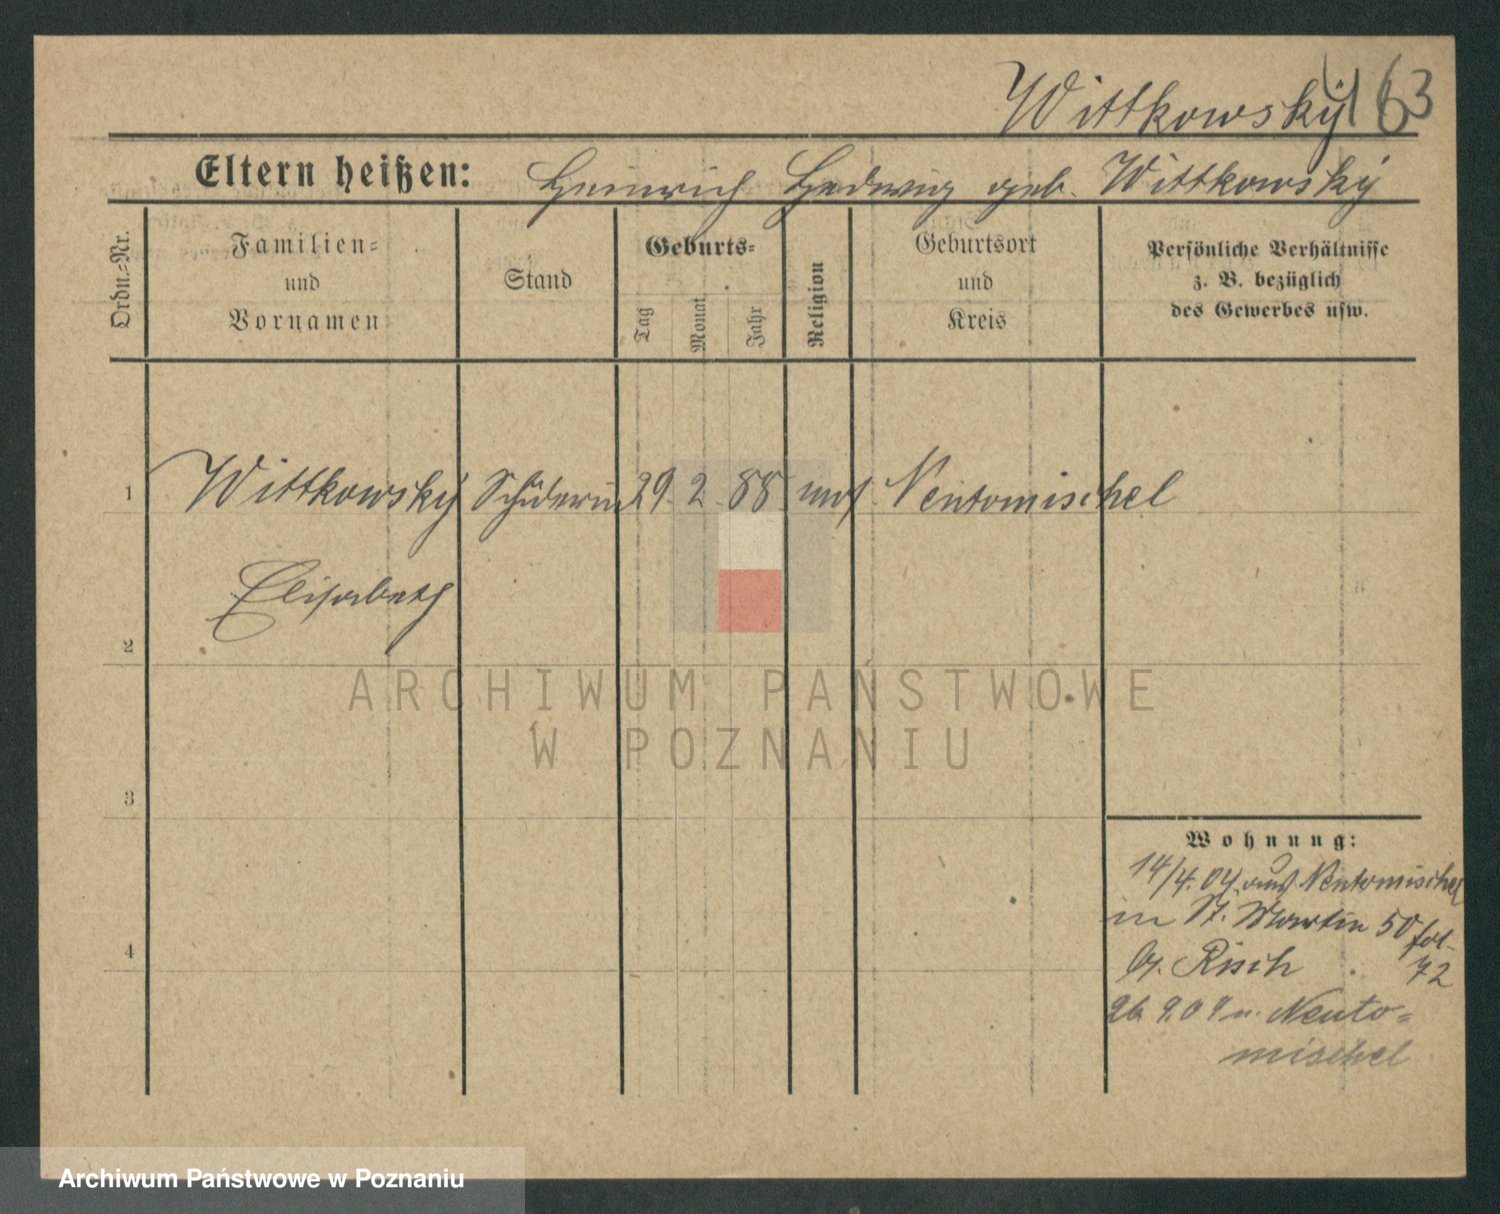 Wittkowsky 163
Eltern heißen: Heinrich Hedwig geb. Wittkowsky
Ordn.=Nr.
Familien=
und
Vornamen
Stand
Geburts=
Tag
Monat
Jahr
Religion
Geburtsort
und
Kreis
Persönliche Verhältnisse
z. B. bezüglich
des Gewerbes usw.
1 Wittkowsky Schülerin 29. 2. 88. mos Neutomischel
Elisabeth
2
ARCHIWUM PAŃSTWOWE
W POZNANIU
3
4
Wohnung:
14/4. 04 aus Neutomischel
in St. Martin 50
b. Risch 72
26 9. 04 n. Neuto=
mischel
Archiwum Państwowe w Poznaniu